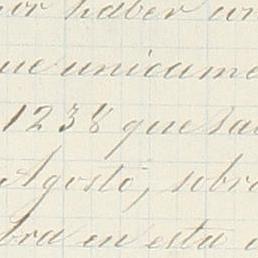 or haber un
ue unicame
1238 que sa
Agosto, sobr
bra en esta